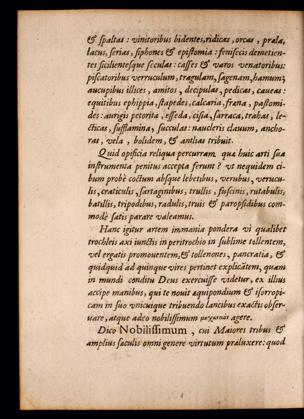 & spaltas: vinitoribus bidentes, ridicas, orcas, præla,
lacus, serias, siphones & epistomia: fenisecis demetien-
tes sicilientesque seculas: casses & varos venatoribus:
piscatoribus verruculum, tragulam, sagenam, hamum;
aucupibus illices, amites, decipulas, pedicas, caueas:
equitibus ephippia, stapedes, calcaria, fræna, pastomi-
des: aurigis petorita, esseda, cisia, sarraca, trahas, le-
cticas, sufflamina, succulas: naucleris clauum, ancho-
ras, vela, bolidem, & antlias tribuit.
Quid opificia reliqua percurram, qua huic arti sua
instrumenta penitus accepta ferunt? vt nequidem ci-
bum probè coctum absque lebetibus, verubus, verucu-
lis, craticulis, sartaginibus, trullis, fuscinis, rutabulis,
batillis, tripodibus, radulis, truis & paropsidibus com-
modè satis parare valeamus.
Hanc igitur artem immania pondera vi qualibet
trochleis axi iunctis in peritrochio in sublime tollentem,
vel ergatis promouentem, & tollenones, pancratia, &
quidquid ad quinque vires pertinet explicātem, quam
in mundi conditu Deus exercuisse videtur, ex illius
accipe manibus, qui te nouit æquipondium & isorropi-
cam in suo vnicuique tribuendo lancibus exactis obser-
uare, atque adeo nobilissimum agere.
Dico Nobilissimum, cui Maiores tribus &
amplius sæculis omni genere virtutum præluxere: quod